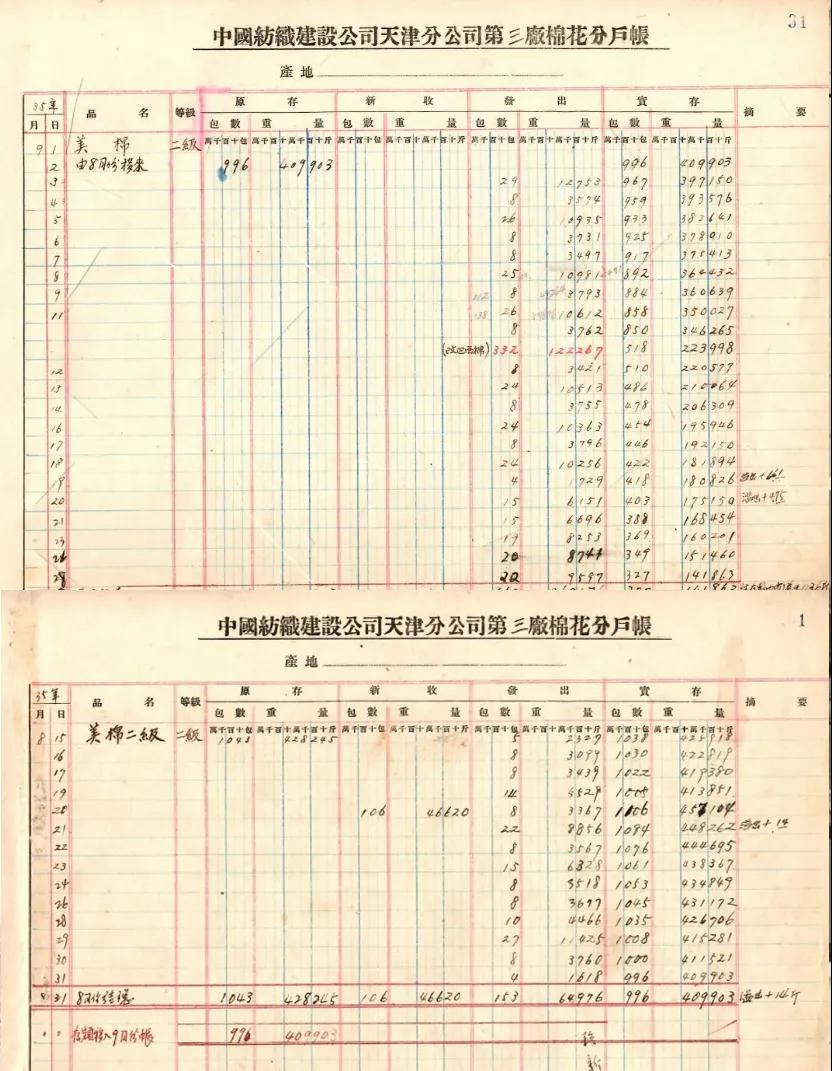 31
中國紡織建設公司天津分公司第三廠棉花分戶帳
產地
35年 品名 等級 原存 新收 發出 實存 摘要
月 日 包數 重量 包數 重量 包數 重量 包數 重量
萬千百十包 萬千百十萬千百十斤 萬千百十包 萬千百十萬千百十斤 萬千百十包 萬千百十萬千百十斤 萬千百十包 萬千百十萬千百十斤
9 1 美棉 二級
2 由8月份移來 996 409903 996 409903
3 29 12753 967 397150
4 8 3574 959 393576
5 26 10935 933 382641
6 8 3731 925 378910
7 8 3497 917 375413
8 25 10981 892 364432
9 8 3793 884 360639
11 26 10612 858 350027
8 3762 850 346265
332 122267 518 223998
12 8 3421 510 220577
13 24 10513 486 210064
14 8 3755 478 206309
16 24 10363 454 195946
17 8 3796 446 192150
18 24 10256 422 181894
19 4 1729 418 180826 溢出+661
20 15 6151 403 175150 溢出+475
21 15 6696 388 168454
23 19 8253 369 160201
26 20 8741 349 151460
28 22 9597 327 141863
中國紡織建設公司天津分公司第三廠棉花分戶帳
1
產地
35年 品名 等級 原存 新收 發出 實存 摘要
月 日 包數 重量 包數 重量 包數 重量 包數 重量
萬千百十包 萬千百十萬千百十斤 萬千百十包 萬千百十萬千百十斤 萬千百十包 萬千百十萬千百十斤 萬千百十包 萬千百十萬千百十斤
8 15 美棉二級 二級 1043 428245 5 2327 1038 425918
16 8 3099 1030 422819
17 8 3439 1022 419380
19 14 5529 1008 413851
20 106 46620 8 3367 1106 457104
21 22 8856 1084 448262 溢出+14
22 8 3567 1076 444695
23 15 6328 1061 438367
24 8 3518 1053 434849
26 8 3677 1045 431172
28 10 4466 1035 426706
29 27 11425 1008 415281
30 8 3760 1000 411521
31 4 1618 996 409903
8 31 8月份結環 1043 428245 106 46620 153 64976 996 409903 溢出+14斤
〃 〃 存額移入9月份帳 996 409903